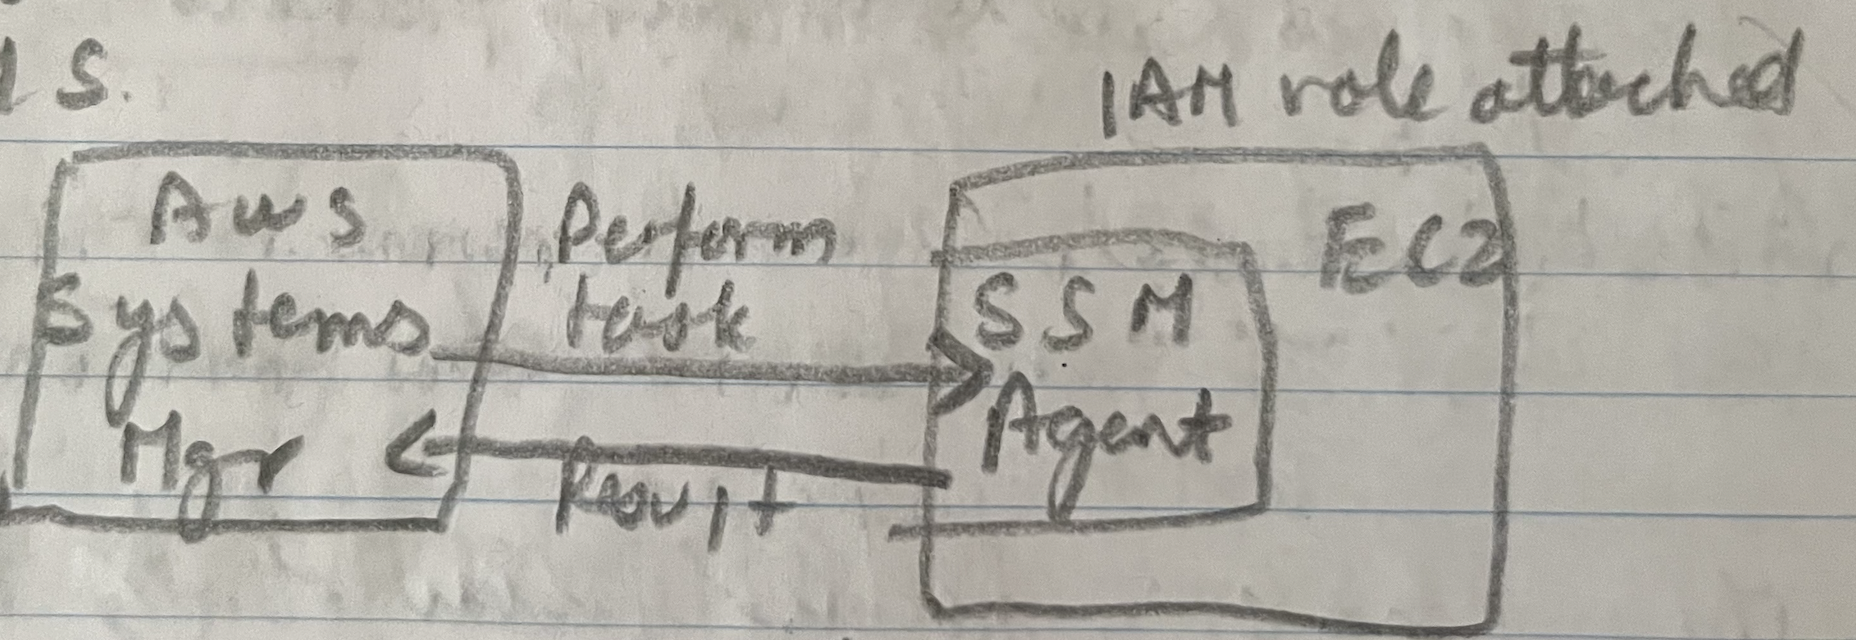 S.
IAM role attached
Aws
Systems
Mgr
Perform
task
Result
EC2
SSM
Agent